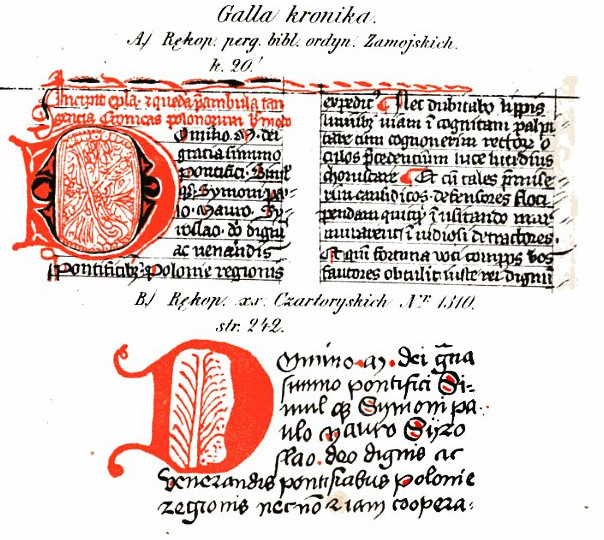 Galla kronika.
A) Rękop. perg. bibl. ordyn. Zamojskich.
k. 20.'
Incipit epla. et queda pambula tan
gencia Cronicas polonorum
Omino. M. dei
gracia summo
pontifici. Simul
qz. Symoni pa-
lo. Mauro. Sy
rollao. do dign
ac uenandis
pontificibz Polonie regionis
expedit. Nec dubitabo lippis
lumīs uiam ī cognitam palpi
tare cum cognouerim rectore o
culos pcedencium luce lucidius
choruscare. Et cū tales pmise
rim causidicos. defensores floci
pendam quicqz inuitando mur
murauerit inuidiosi detractores.
Et qm fortuna uoti compos uos
fautores obtulit iuste rei dignū
B) Rękop. xv. Czartoryskich Nr. 1310.
str. 242.
Omino. M. dei gna
summo pontifici Si-
mul qz Symoni pa-
ulo Mauro Syzo
slao. deo dignis ac
venerandis pontificabus polonie
regionis nec nō z iam coopera-